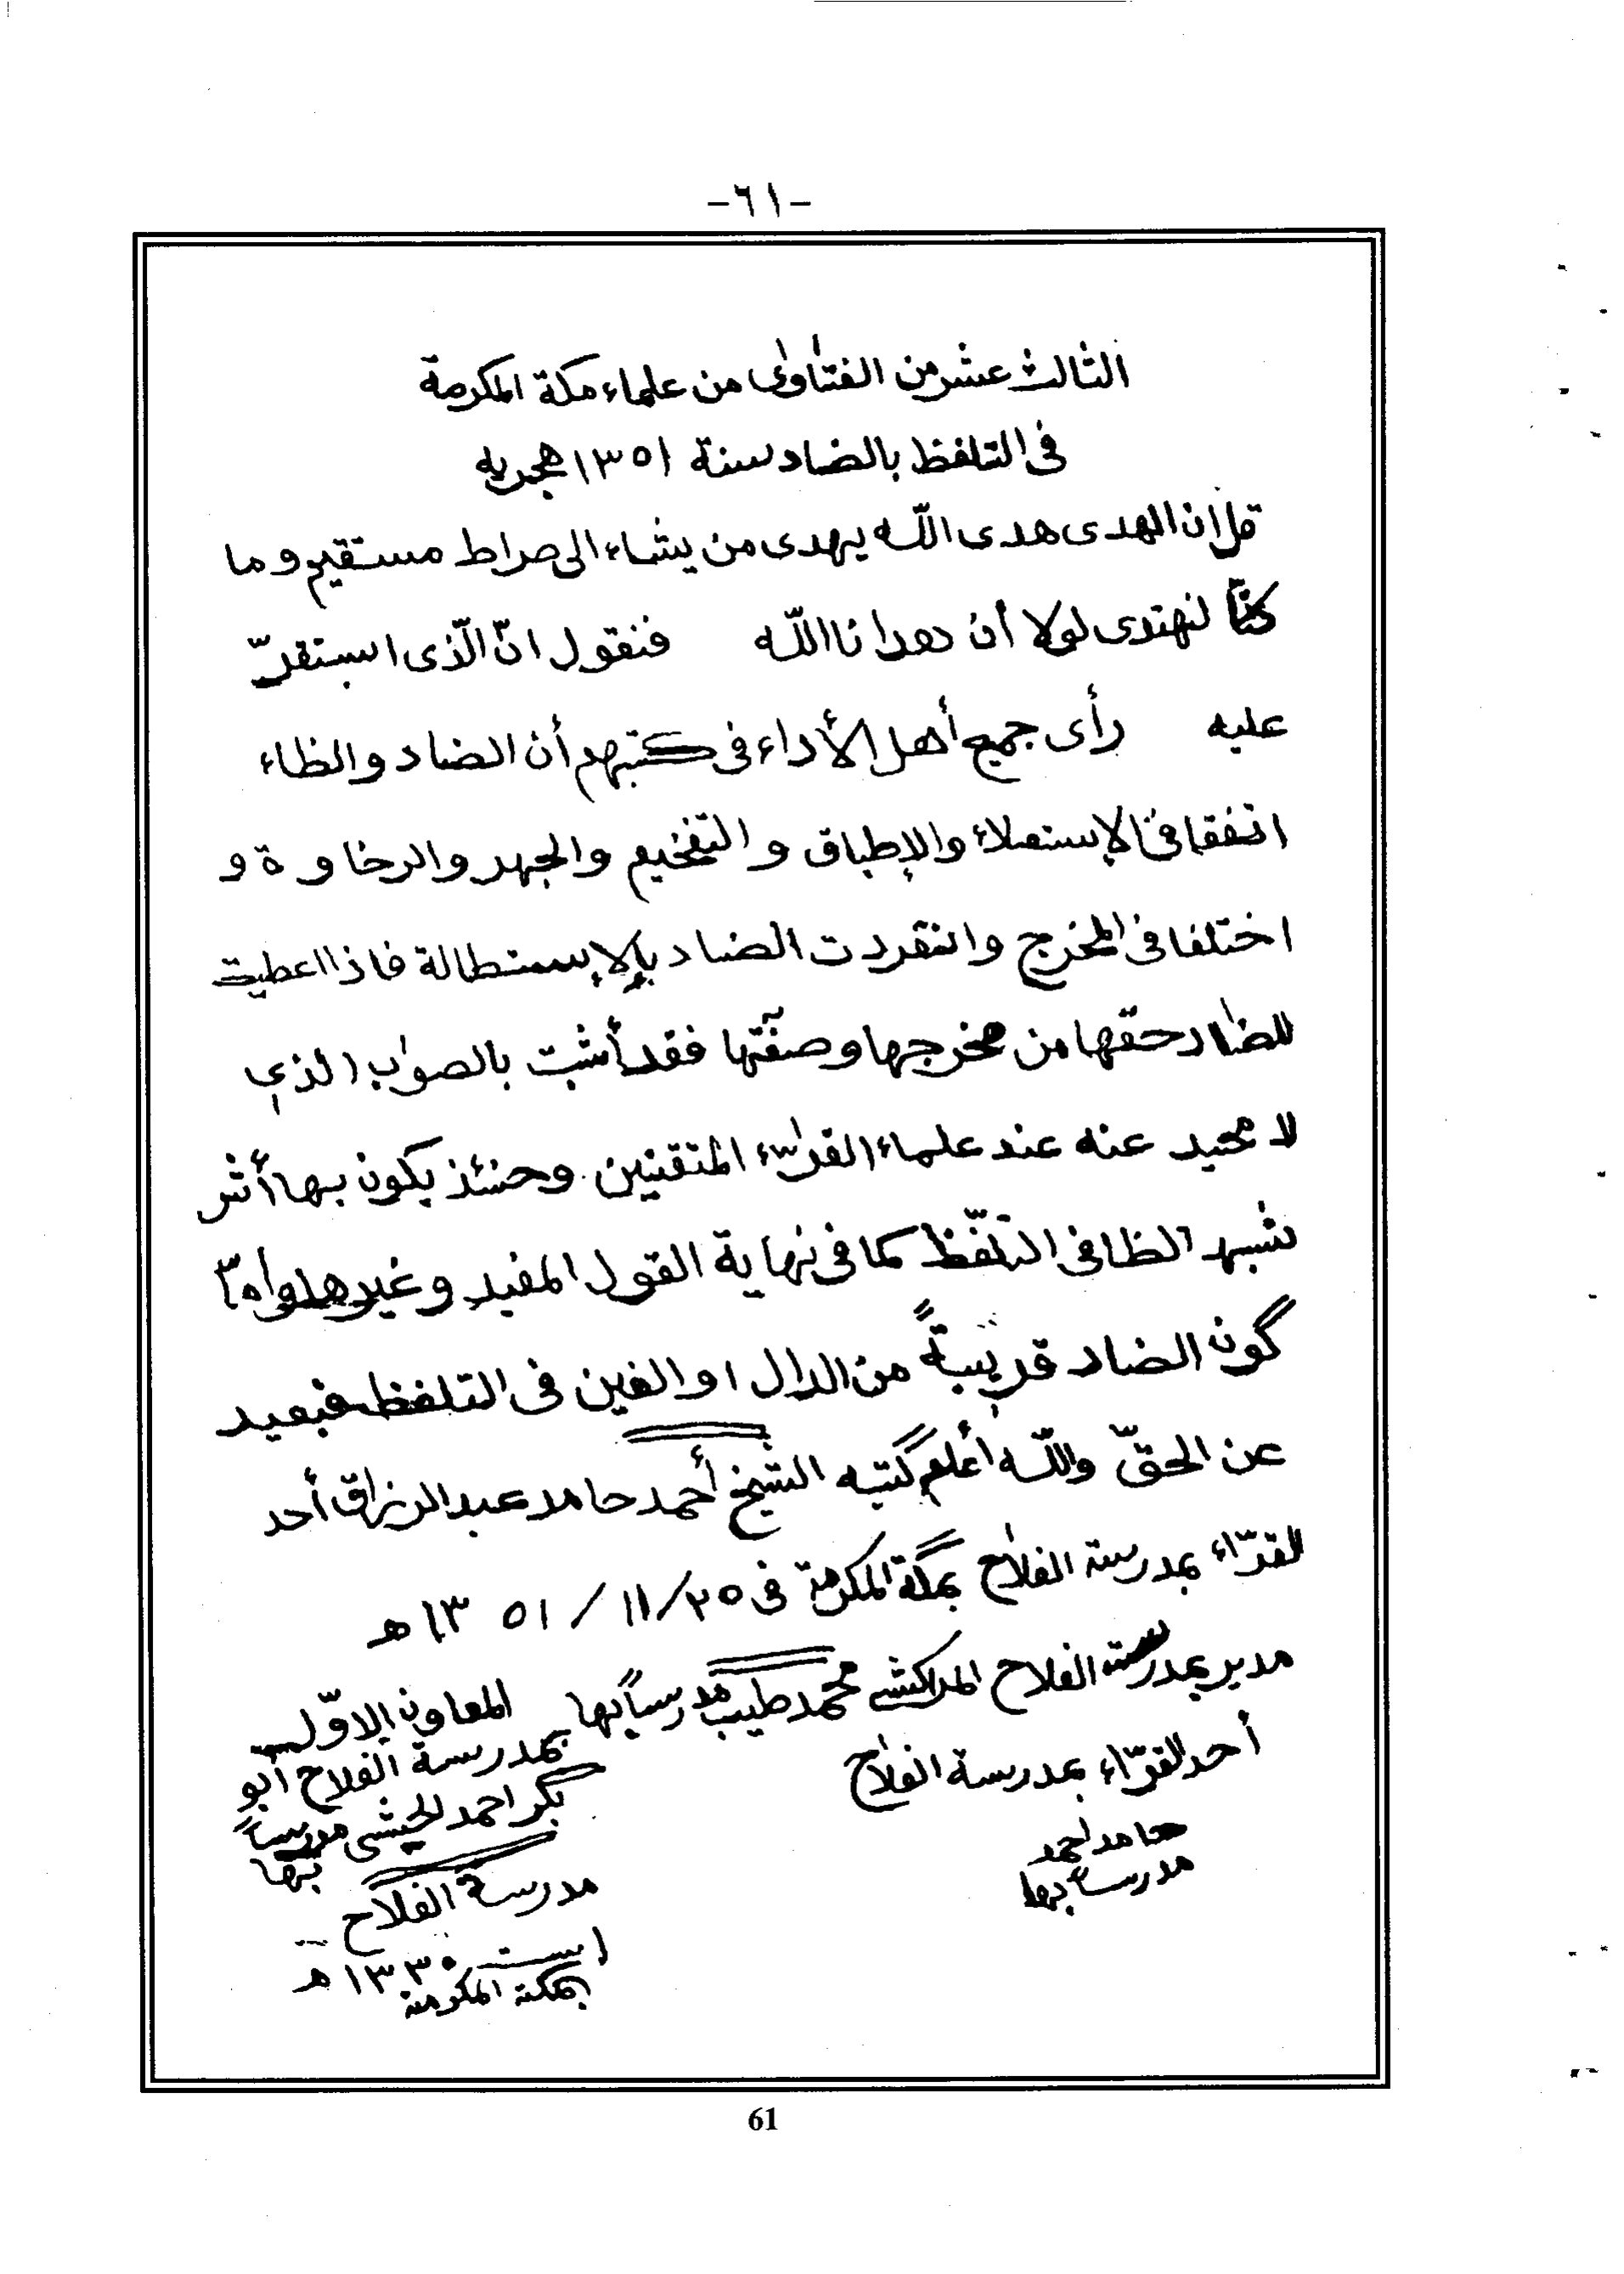 -٦١-
الثالث عشر من الفتاوى من علماء مكة المكرمة
فى التلفظ بالضاد سنة ١٣٥١ هجريه
قل ان الهدى هدى اللّه يهدى من يشاء الى صراط مستقيم وما
كنّا لنهتدى لولا أن هدانا اللّه فنقول انّ الّذى استقرّ
عليه رأى جميع أهل الأداء فى كتبهم أن الضاد والظاء
اتفقا فى الإستعلاء والإطباق والتفخيم والجهر والرخاوة و
اختلفا فى المخرج وانفردت الضاد بالإستطالة فاذا اعطيت
للضاد حقها من مخرجها وصفتها فقد أثبت بالصواب الذي
لا محيد عنه عند علماء القرّاء المتقنين. وحنئذ يكون بها أثر
شبه الظا فى التلفّظ كما فى نهاية القول المفيد وغيرها وامّا
كون الضاد قريبةً من الدال او الغين فى التلفظ فبعيد
عن الحقّ واللّه أعلم كتبه الشيخ أحمد حامد عبد الرزاق أحد
القرّاء بمدرسة الفلاح بمكة المكرمة فى ٢٥/١١/١٣٥١ هـ
مدير بمدرسة الفلاح المراكشى محمد طيب مدرساً بها المعاون الاوّل
بمدرسة الفلاح أبو
بكر احمد الحبشى مدرساً
بها
أحد القرّاء بمدرسة الفلاح
حامد احمد
مدرساً بها
مدرسة الفلاح
١٣٣٠ هـ
بمكة المكرمة
61